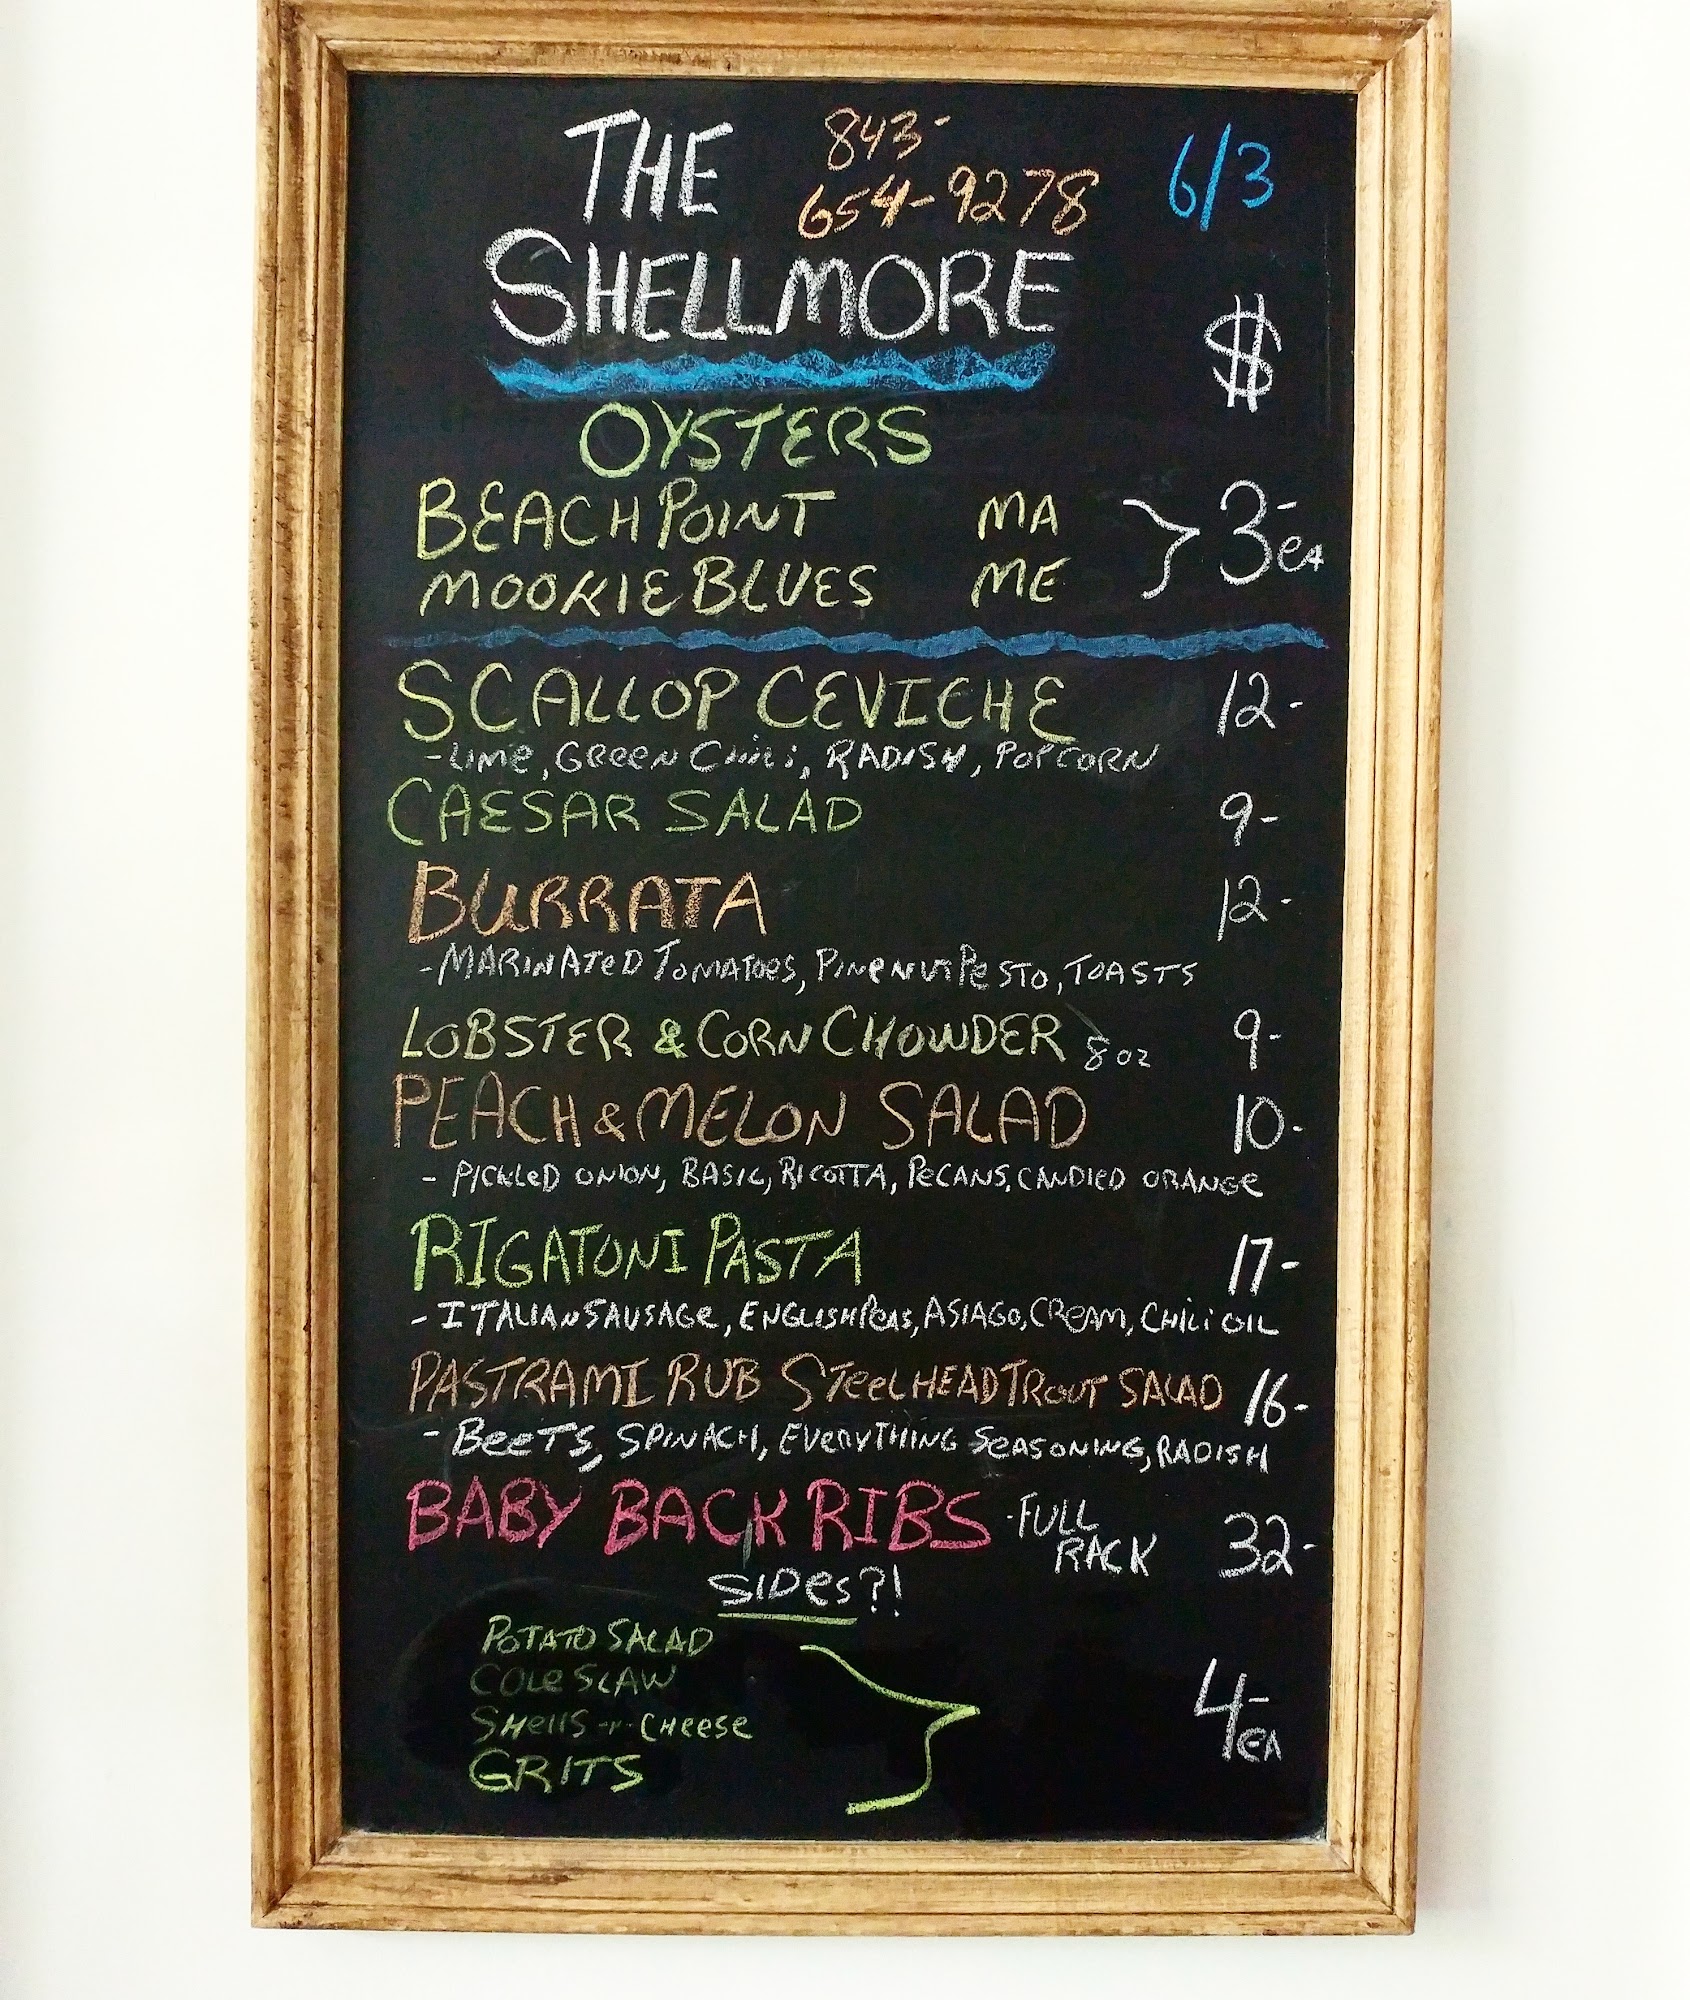 THE
843-
654-9278
6/3
SHELLMORE
$
OYSTERS
BEACH POINT MA
MOOKIE BLUES ME
3- ea
SCALLOP CEVICHE 12-
- LIME, GREEN CHILI, RADISH, POPCORN
CAESAR SALAD 9-
BURRATA 12-
- MARINATED TOMATOES, PINENUT PESTO, TOASTS
LOBSTER & CORN CHOWDER 8 oz 9-
PEACH & MELON SALAD 10-
- PICKLED ONION, BASIL, RICOTTA, PECANS, CANDIED ORANGE
RIGATONI PASTA 17-
- ITALIAN SAUSAGE, ENGLISH PEAS, ASIAGO, CREAM, CHILI OIL
PASTRAMI RUB STEELHEAD TROUT SALAD 16-
- BEETS, SPINACH, EVERYTHING SEASONING, RADISH
BABY BACK RIBS - FULL RACK 32-
SIDES?!
POTATO SALAD
COLE SLAW
SHELLS -n- CHEESE
GRITS
4- EA